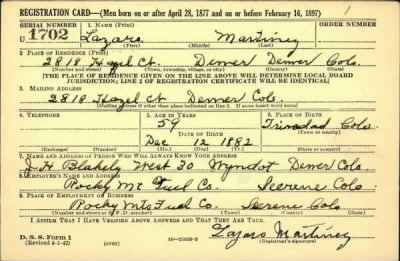 REGISTRATION CARD—(Men born on or after April 28, 1877 and on or before February 16, 1897)
SERIAL NUMBER 1. NAME (Print) ORDER NUMBER
U 1702 Lazaro Martinez
(First) (Middle) (Last)
2. PLACE OF RESIDENCE (Print)
2818 Hazel Ct. Denver Denver Colo.
(Number and street) (Town, township, village, or city) (County) (State)
[THE PLACE OF RESIDENCE GIVEN ON THE LINE ABOVE WILL DETERMINE LOCAL BOARD
JURISDICTION; LINE 2 OF REGISTRATION CERTIFICATE WILL BE IDENTICAL]
3. MAILING ADDRESS
2818 Hazel Ct Denver Colo.
[Mailing address if other than place indicated on line 2. If same insert word same]
4. TELEPHONE 5. AGE IN YEARS 6. PLACE OF BIRTH
59 Trinidad Colo.
DATE OF BIRTH
Dec 12 1882
(Exchange) (Number) (Mo.) (Day) (Yr.) (Town or county) (State or country)
7. NAME AND ADDRESS OF PERSON WHO WILL ALWAYS KNOW YOUR ADDRESS
J. H. Blakely West 30 Wyndot Denver Colo.
8. EMPLOYER'S NAME AND ADDRESS
Rocky Mt Fuel Co. Serene Colo.
9. PLACE OF EMPLOYMENT OR BUSINESS
Rocky Mts Fuel Co. Serene Colo
(Number and street or R. F. D. number) (Town) (County) (State)
I AFFIRM THAT I HAVE VERIFIED ABOVE ANSWERS AND THAT THEY ARE TRUE.
D. S. S. Form 1
(Revised 4-1-42) (over) Lazaro Martinez
(Registrant's signature)